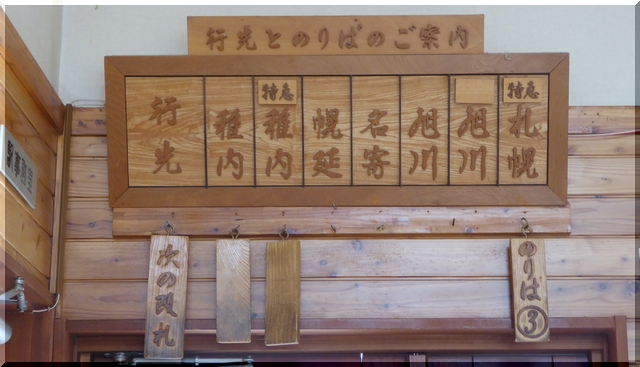 行先とのりばのご案内
行先
稚内
特急
稚内
幌延
名寄
旭川
旭川
特急
札幌
次の改札
のりば③